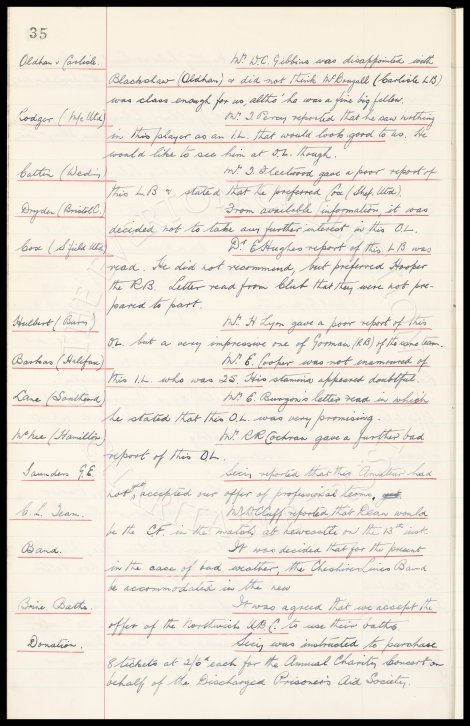 35
Oldham v Carlisle. Mr. W.C. Gibbins was disappointed with
Blackshaw (Oldham) & did not think McDougall (Carlisle L.B)
was class enough for us, altho' he was a fine big fellow.
Rodger (M/c Utd) Mr. J. Percy reported that he saw nothing
in this player as an I.L. that would look good to us. He
would like to see him at O.L. though.
Catlin (Wedn's) Mr. T. Fleetwood gave a poor report of
this L B & stated that he preferred Cox (Shef. Utd).
Dryden (Bristol C. From available information it was
decided not to take any further interest in this O.L.
Cox (S'field Utd) Dr. E. Hughes report of this L B was
read. He did not recommend, but preferred Hooper
the R.B. Letter read from Club that they were not pre-
pared to part.
Hulbert (Bury) Mr. H Lyon gave a poor report of this
O.L. but a very impressive one of Gorman (R.B) of the same team.
Barkas (Halifax) Mr. E. Cooper was not enamoured of
this I.L. who was 25. His stamina appeared doubtful.
Lane (Southend) Mr. E. Burgon's letter read in which
he stated that this O.L. was very promising.
McNee (Hamilton) Mr. R.R Cochran gave a further bad
report of this O.L.
Saunders G.E. Secy reported that this Amateur had
not accepted our offer of professional terms.
C. L. Team. Mr. W Cuff reported that Dean would
be the C.F. in the match at Newcastle on the 13th inst.
Band. It was decided that for the present
in the case of bad weather, the Cheshire Lines Band
be accommodated in the new
Brine Baths. It was agreed that we accept the
offer of the Northwich U.D.C. to use their baths
Donation. Secy was instructed to purchase
8 tickets at 2/6d each for the Annual Charity Concert on
behalf of the Discharged Prisoner's Aid Society.